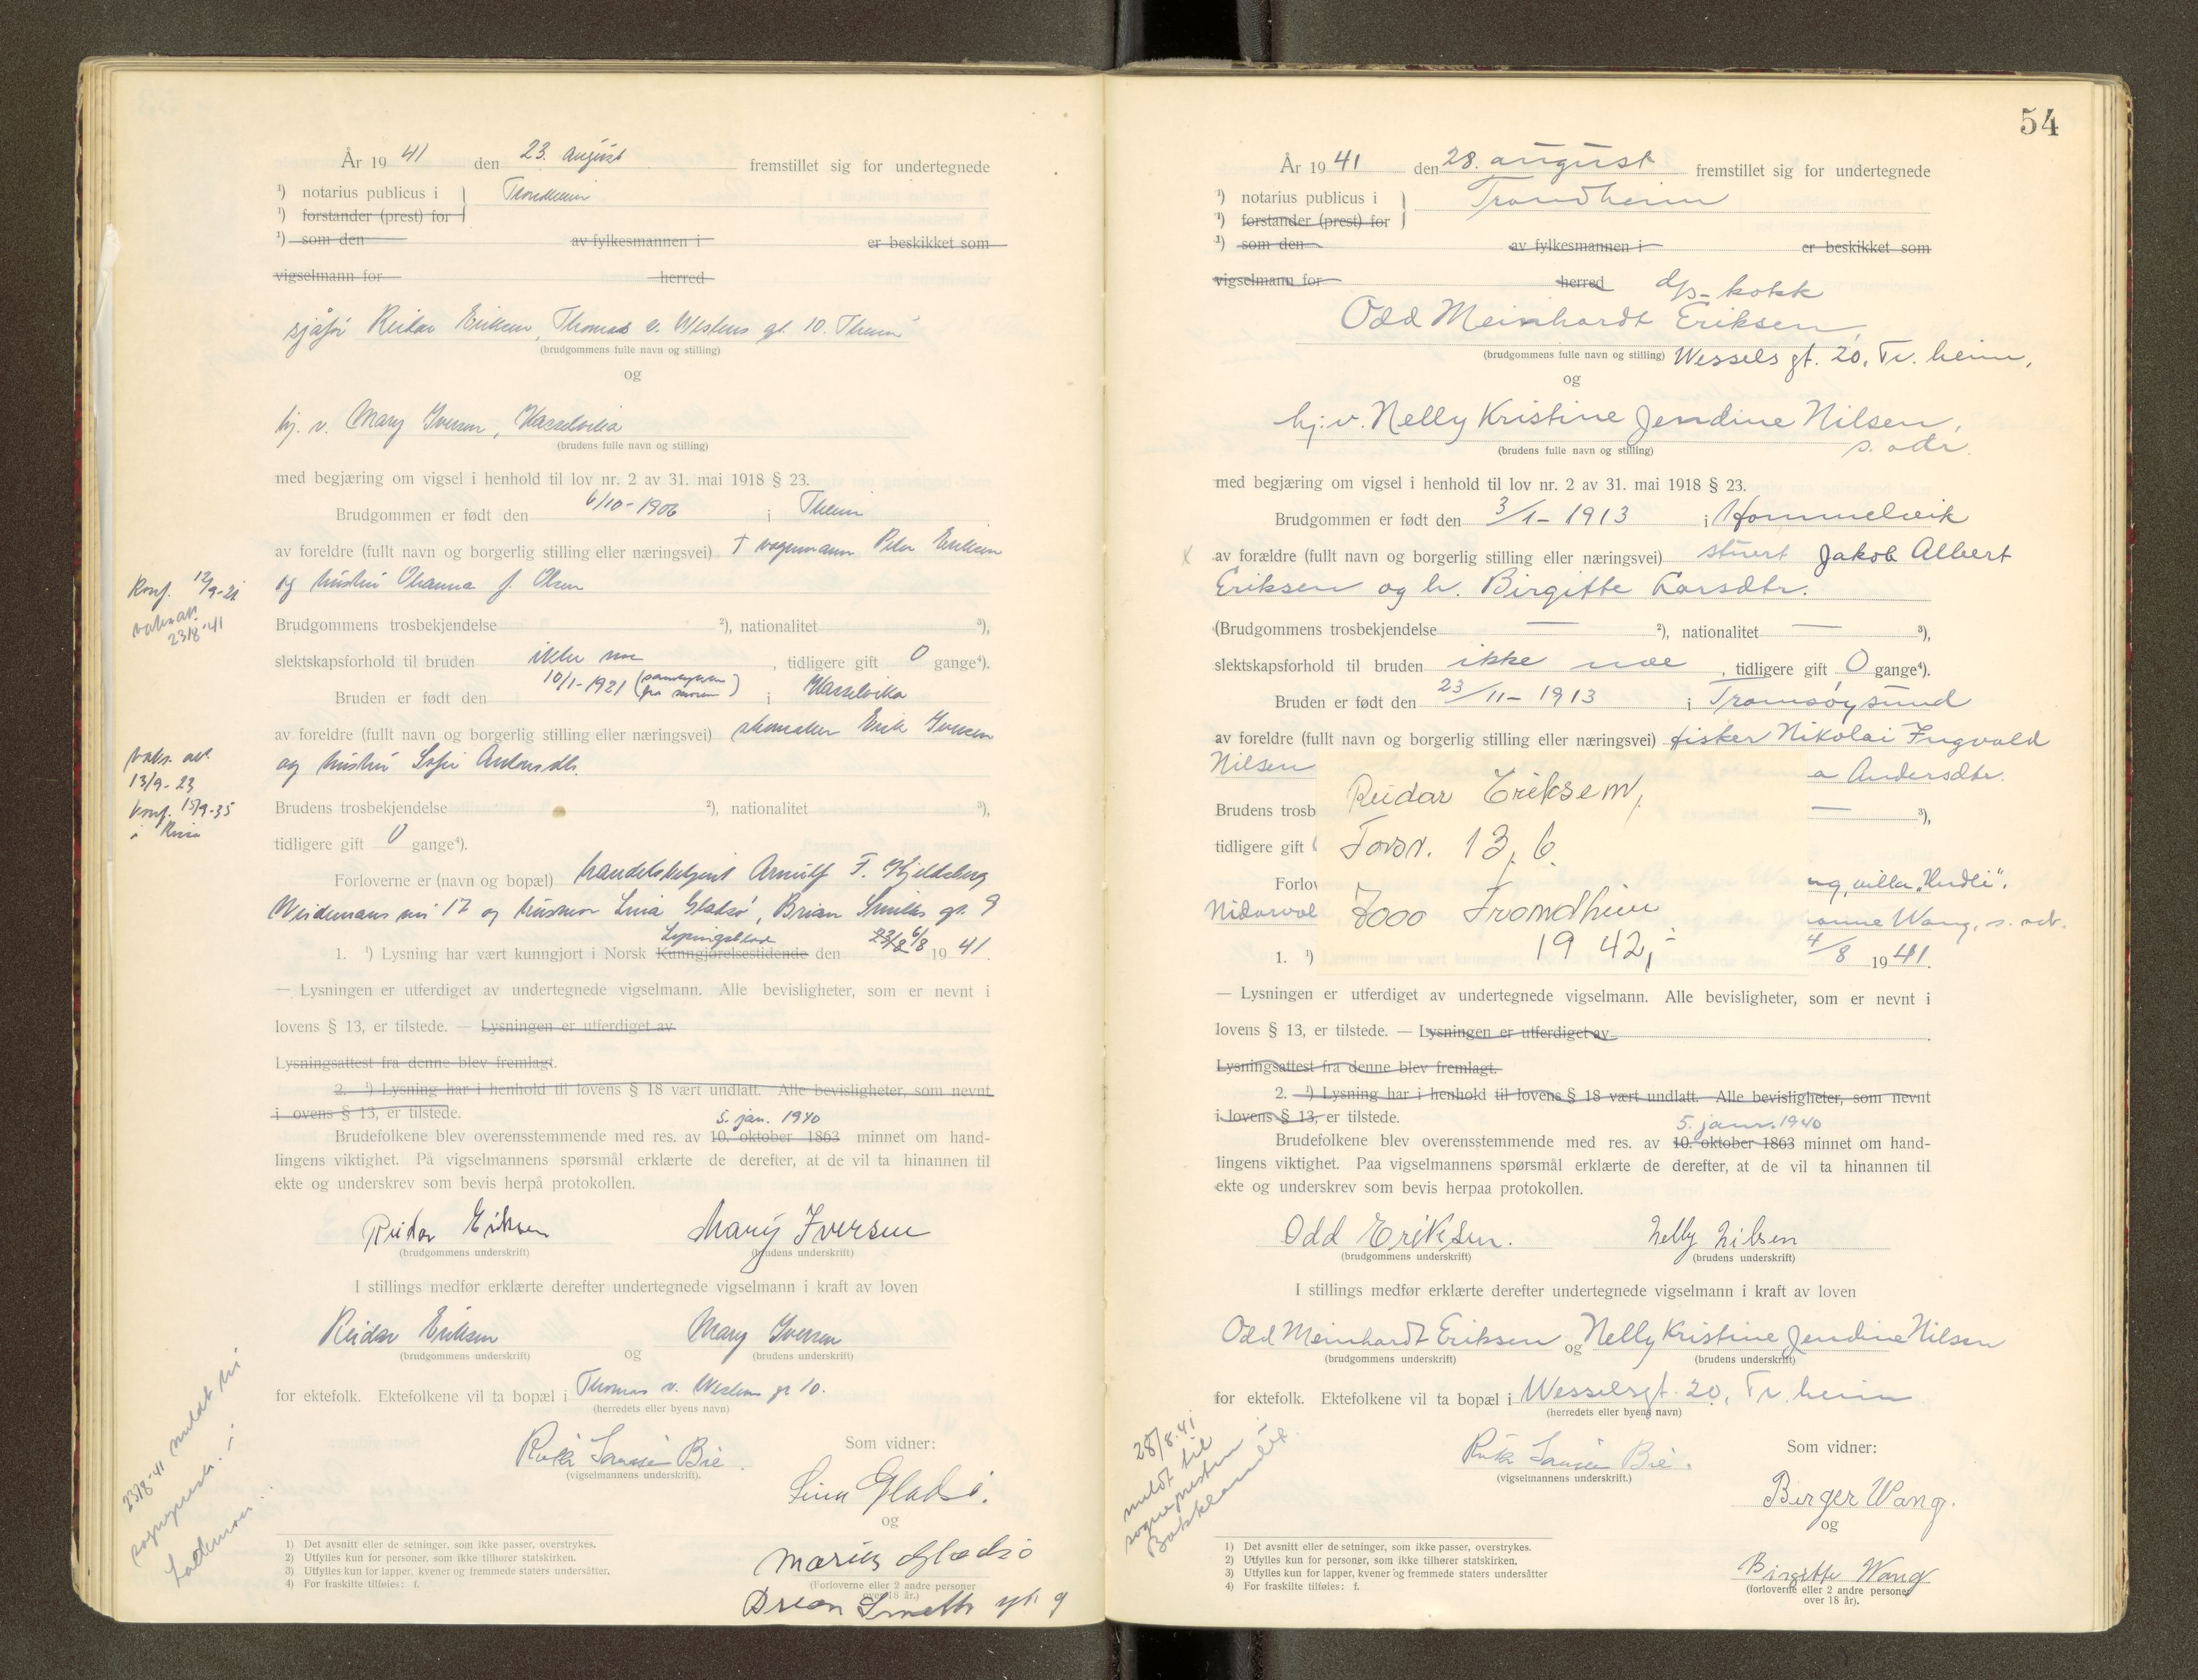 År 1941 den 23. august fremstillet sig for undertegnede
¹) notarius publicus i } Trondheim
¹) forstander (prest) for
¹) som den av fylkesmannen i er beskikket som
vigselmann for herred
sjåfør Reidar Eriksen, Thomas v. Westens gt. 10. Thеim
(brudgommens fulle navn og stilling)
og
hj. v. Mary Iversen, Hasselvika
(brudens fulle navn og stilling)
med begjæring om vigsel i henhold til lov nr. 2 av 31. mai 1918 § 23.
Brudgommen er født den 6/10-1906 i Theim
av foreldre (fullt navn og borgerlig stilling eller næringsvei) † vognmann Peder Eriksen
og hustru Ohanna f. Olsen
Konf. 12/9-21
23/8-41
Brudgommens trosbekjendelse ²), nationalitet ³),
slektskapsforhold til bruden ikke noe, tidligere gift 0 gange⁴).
Bruden er født den 10/1-1921 (samtykke fra moren) i Hasselvika
av foreldre (fullt navn og borgerlig stilling eller næringsvei) skomaker Erik Iversen
og hustru Sofie Antonsdtr.
vaks. att.
13/9-23
konf. 15/9-35
i Rissa
Brudens trosbekjendelse ²), nationalitet ³),
tidligere gift 0 gange⁴).
Forloverne er (navn og bopæl) handelsbetjent Arnulf F. Kjeldsberg
Weidemans vei 12 og husmor Lina Gladsø, Brian Smiths gt. 9
1. ¹) Lysning har vært kunngjort i Norsk Kunngjørelsestidende Lysingsblad den 23/8 6/8 1941.
— Lysningen er utferdiget av undertegnede vigselmann. Alle bevisligheter, som er nevnt i
lovens § 13, er tilstede. — Lysningen er utferdiget av
Lysningsattest fra denne blev fremlagt.
2. ¹) Lysning har i henhold til lovens § 18 vært undlatt. Alle bevisligheter, som nevnt
i lovens § 13, er tilstede.
5. jan. 1940
Brudefolkene blev overensstemmende med res. av 10. oktober 1863 minnet om hand-
lingens viktighet. På vigselmannens spørsmål erklærte de derefter, at de vil ta hinannen til
ekte og underskrev som bevis herpå protokollen.
Reidar Eriksen Mary Iversen
(brudgommens underskrift) (brudens underskrift)
I stillings medfør erklærte derefter undertegnede vigselmann i kraft av loven
Reidar Eriksen og Mary Iversen
(brudgommens underskrift) (brudens underskrift)
for ektefolk. Ektefolkene vil ta bopæl i Thomas v. Westens gt 10.
(herredets eller byens navn)
23/8-41 meldt til
sogneprest. i
Lademoen
(vigselmannens underskrift).
Som vidner:
Lina Gladsø.
og
Marius Gladsø
(Forloverne eller 2 andre personer
over 18 år.)
Brian Smeths gt. 9
1) Det avsnitt eller de setninger, som ikke passer, overstrykes.
2) Utfylles kun for personer, som ikke tilhører statskirken.
3) Utfylles kun for lapper, kvener og fremmede staters undersåtter.
4) For fraskilte tilføies: f.
54
År 1941 den 28. august fremstillet sig for undertegnede
¹) notarius publicus i } Trondheim
¹) forstander (prest) for
¹) som den av fylkesmannen i er beskikket som
vigselmann for herred
d/s- kokk
Odd Meinhardt Eriksen,
(brudgommens fulle navn og stilling) Wesselsgt. 20, Tr. heim,
og
hj. v. Nelly Kristine Jendine Nilsen,
s. adr.
(brudens fulle navn og stilling)
med begjæring om vigsel i henhold til lov nr. 2 av 31. mai 1918 § 23.
Brudgommen er født den 3/1-1913 i Hommelvik
x av forældre (fullt navn og borgerlig stilling eller næringsvei) stuert Jakob Albert
Eriksen og h. Birgitte Larsdtr.
(Brudgommens trosbekjendelse — ²), nationalitet — ³),
slektskapsforhold til bruden ikke noe, tidligere gift 0 gange⁴).
Bruden er født den 23/11-1913 i Tromsøysund
av foreldre (fullt navn og borgerlig stilling eller næringsvei) fisker Nikolai Ingvald
Nilsen a Andersdtr.
Brudens trosb — ³),
tidligere gift
Forlo ng, villa „Hedli".
Nidarvol anne Wang, s. adr.
1. ¹) 4/8 1941.
Reidar Eriksen,
Forsv. 13. 6.
7000 Trondheim
1942,-
— Lysningen er utferdiget av undertegnede vigselmann. Alle bevisligheter, som er nevnt i
lovens § 13, er tilstede. — Lysningen er utferdiget av
Lysningsattest fra denne blev fremlagt.
2. ¹) Lysning har i henhold til lovens § 18 vært undlatt. Alle bevisligheter, som nevnt
i lovens § 13, er tilstede.
5. janr. 1940
Brudefolkene blev overensstemmende med res. av 10. oktober 1863 minnet om hand-
lingens viktighet. Paa vigselmannens spørsmål erklærte de derefter, at de vil ta hinannen til
ekte og underskrev som bevis herpaa protokollen.
Odd Eriksen. Nelly Nilsen
(brudgommens underskrift) (brudens underskrift)
I stillings medfør erklærte derefter undertegnede vigselmann i kraft av loven
Odd Meinhardt Eriksen og Nelly Kristine Jendine Nilsen
(brudgommens underskrift) (brudens underskrift)
for ektefolk. Ektefolkene vil ta bopæl i Wesselsgt. 20, Tr. heim
(herredets eller byens navn)
28/8.41
meldt til
sognepresten i
Bakklandet.
(vigselmannens underskrift.)
Som vidner:
Birger Wang.
og
Birgitte Wang
(forloverne eller 2 andre personer
over 18 år).
1) Det avsnitt eller de setninger, som ikke passer, overstrykes.
2) Utfylles kun for personer, som ikke tilhører statskirken.
3) Utfylles kun for lapper, kvener og fremmede staters undersåtter
4) For fraskilte tilføies: f.